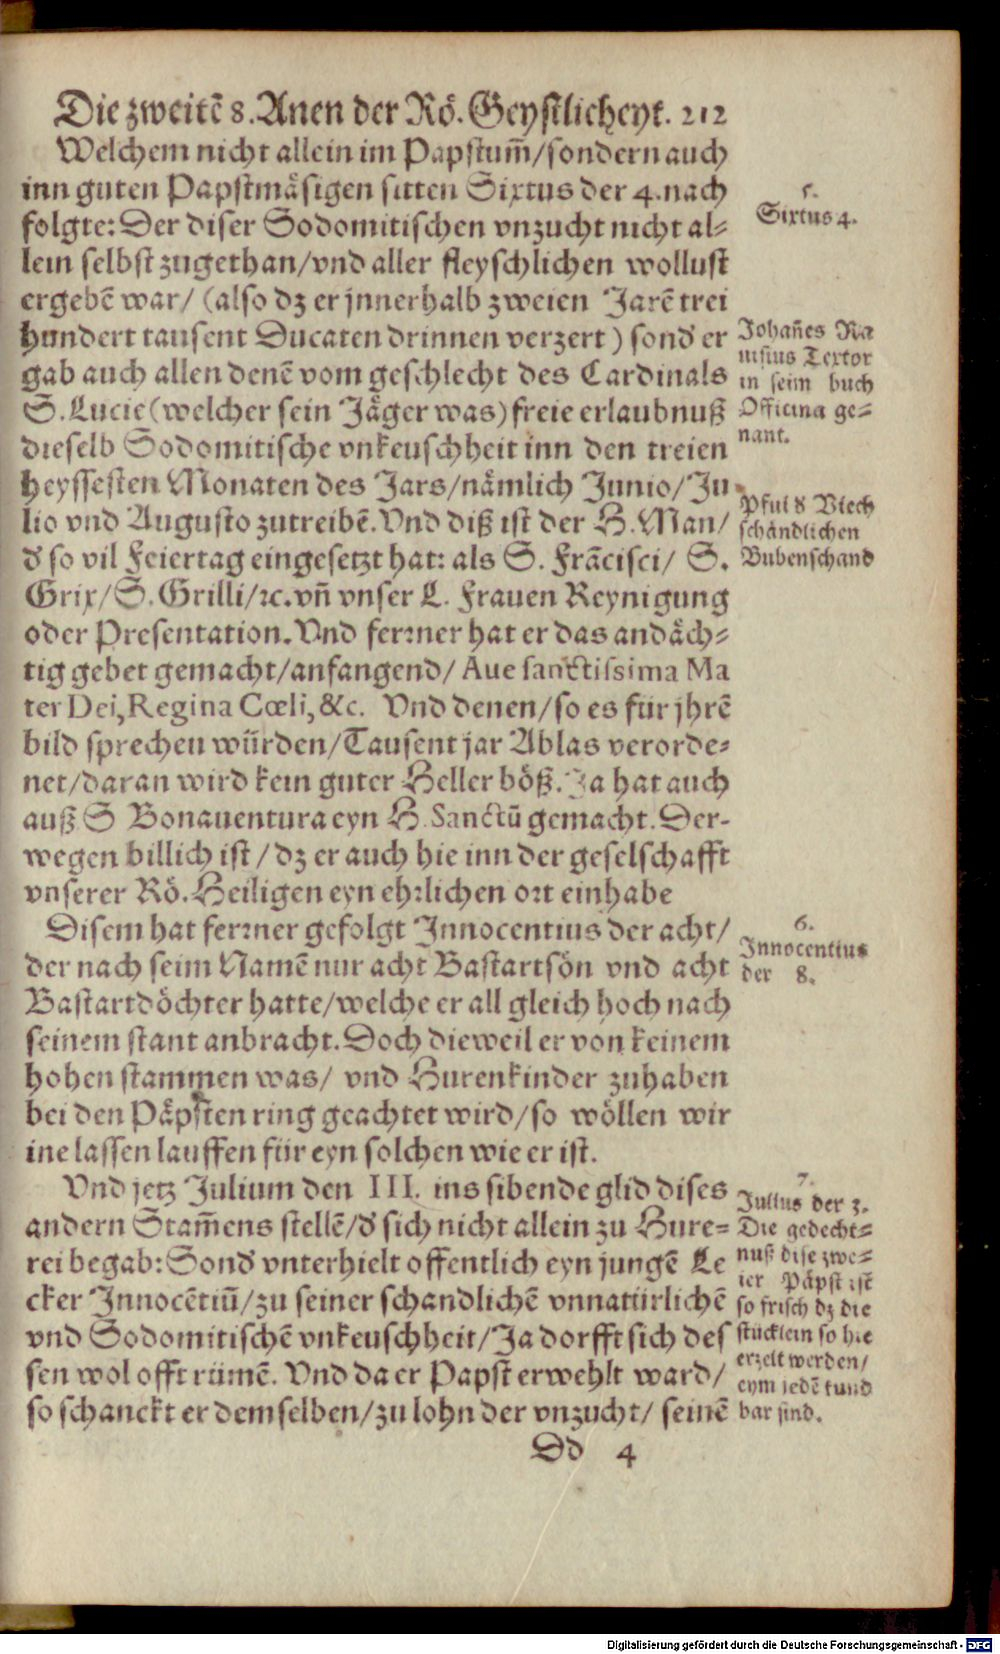 Die zweitē 8. Anen der Rö. Geystlicheyt. 212
Welchem nicht allein im Papstum̄/sondern auch
inn guten Papstmäsigen sitten Sixtus der 4. nach
folgte: Der diser Sodomitischen vnzucht nicht al=
lein selbst zugethan/vnd aller fleyschlichen wollust
ergebē war/ (also dz er jnnerhalb zweien Jarē trei
hundert tausent Ducaten drinnen verzert) sond̓ er
gab auch allen denē vom geschlecht des Cardinals
S. Lucie (welcher sein Jäger was) freie erlaubnuß
dieselb Sodomitische vnkeuschheit inn den treien
heyssesten Monaten des Jars/nämlich Junio/Ju
lio vnd Augusto zutreibē. Vnd diß ist der H. Man/
d̓ so vil Feiertag eingesetzt hat: als S. Frācisci/ S.
Grix/S. Grilli/ꝛc. vn̄ vnser L. Frauen Reynigung
oder Presentation. Vnd ferrner hat er das andäch=
tig gebet gemacht/anfangend/ Aue sanctissima Ma
ter Dei, Regina Cœli, &c. Vnd denen/so es für jhrē
bild sprechen würden/Tausent jar Ablas verorde=
net/daran wird kein guter Heller böß. Ja hat auch
auß S Bonauentura eyn H. Sanctū gemacht. Der-
wegen billich ist/dz er auch hie inn der geselschafft
vnserer Rö. Heiligen eyn ehrlichen ort einhabe
Disem hat ferrner gefolgt Innocentius der acht/
der nach seim Namē nur acht Bastartsön vnd acht
Bastartdöchter hatte/welche er all gleich hoch nach
seinem stant anbracht. Doch dieweil er von keinem
hohen stammen was/ vnd Hurenkinder zuhaben
bei den Päpsten ring geachtet wird/so wöllen wir
ine lassen lauffen für eyn solchen wie er ist.
Vnd jetz Julium den III. ins sibende glid dises
andern Stam̄ens stellē/d̓ sich nicht allein zu Hure=
rei begab: Sond̓ vnterhielt offentlich eyn jungē Le
cker Innocētiū/zu seiner schandlichē vnnatürlichē
vnd Sodomitischē vnkeuschheit/Ja dorfft sich des
sen wol offt rümē. Vnd da er Papst erwehlt ward/
so schanckt er demselben/zu lohn der vnzucht/ seinē
Dd 4
5.
Sixtus 4.
Johan̄es Ra
uisius Textor
in seim buch
Officina ge=
nant.
Pfui d̓ Viech
schändlichen
Bubenschand
6.
Innocentius
der 8.
7.
Julius der 3.
Die gedecht=
nuß dise zwe=
ier Päpst ist
so frisch dz die
stücklein so hie
erzelt werden/
eym jedē kund
bar sind.
Digitalisierung gefördert durch die Deutsche Forschungsgemeinschaft - DFG